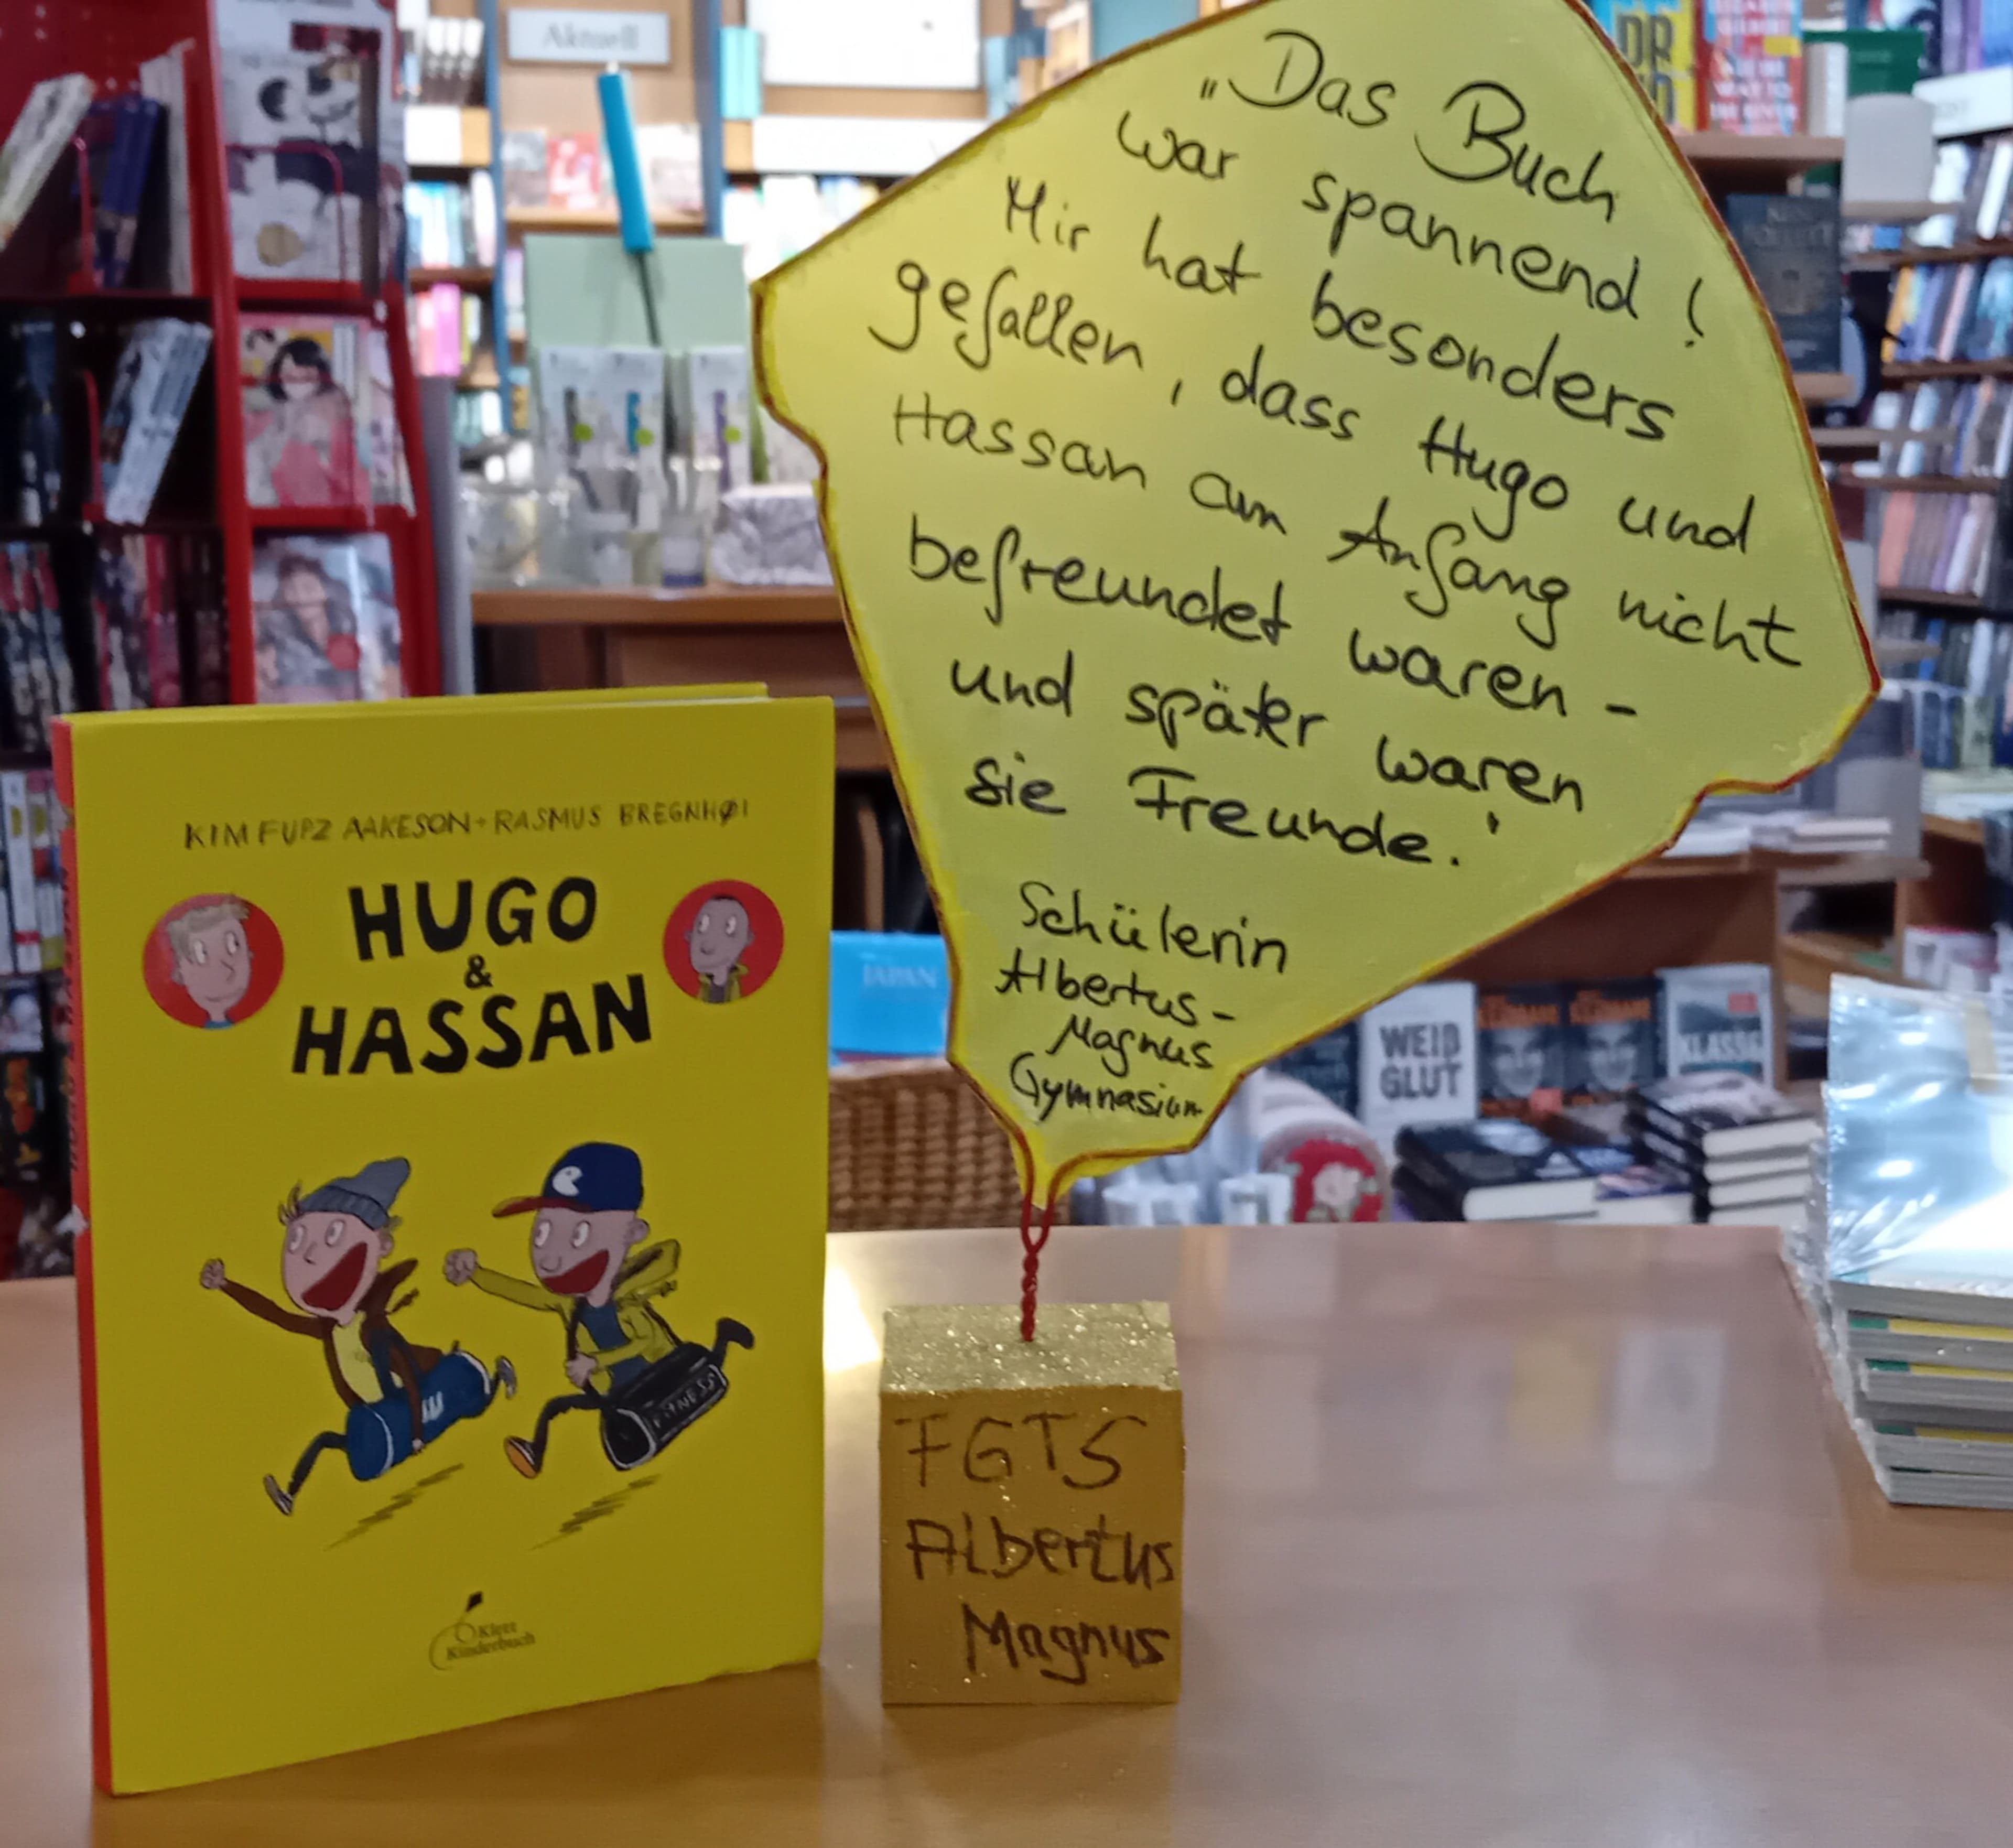 Aktuell
„Das Buch
war spannend!
Mir hat besonders
gefallen, dass Hugo und
Hassan am Anfang nicht
befreundet waren -
und später waren
sie Freunde.'
Schülerin
Albertus-
Magnus
Gymnasium
KIM FUPZ AAKESON + RASMUS BREGNHØI
HUGO
&
HASSAN
FITNESS
Klett
Kinderbuch
FGTS
Albertus
Magnus
JAPAN
WEIß
GLUT
KLASSE